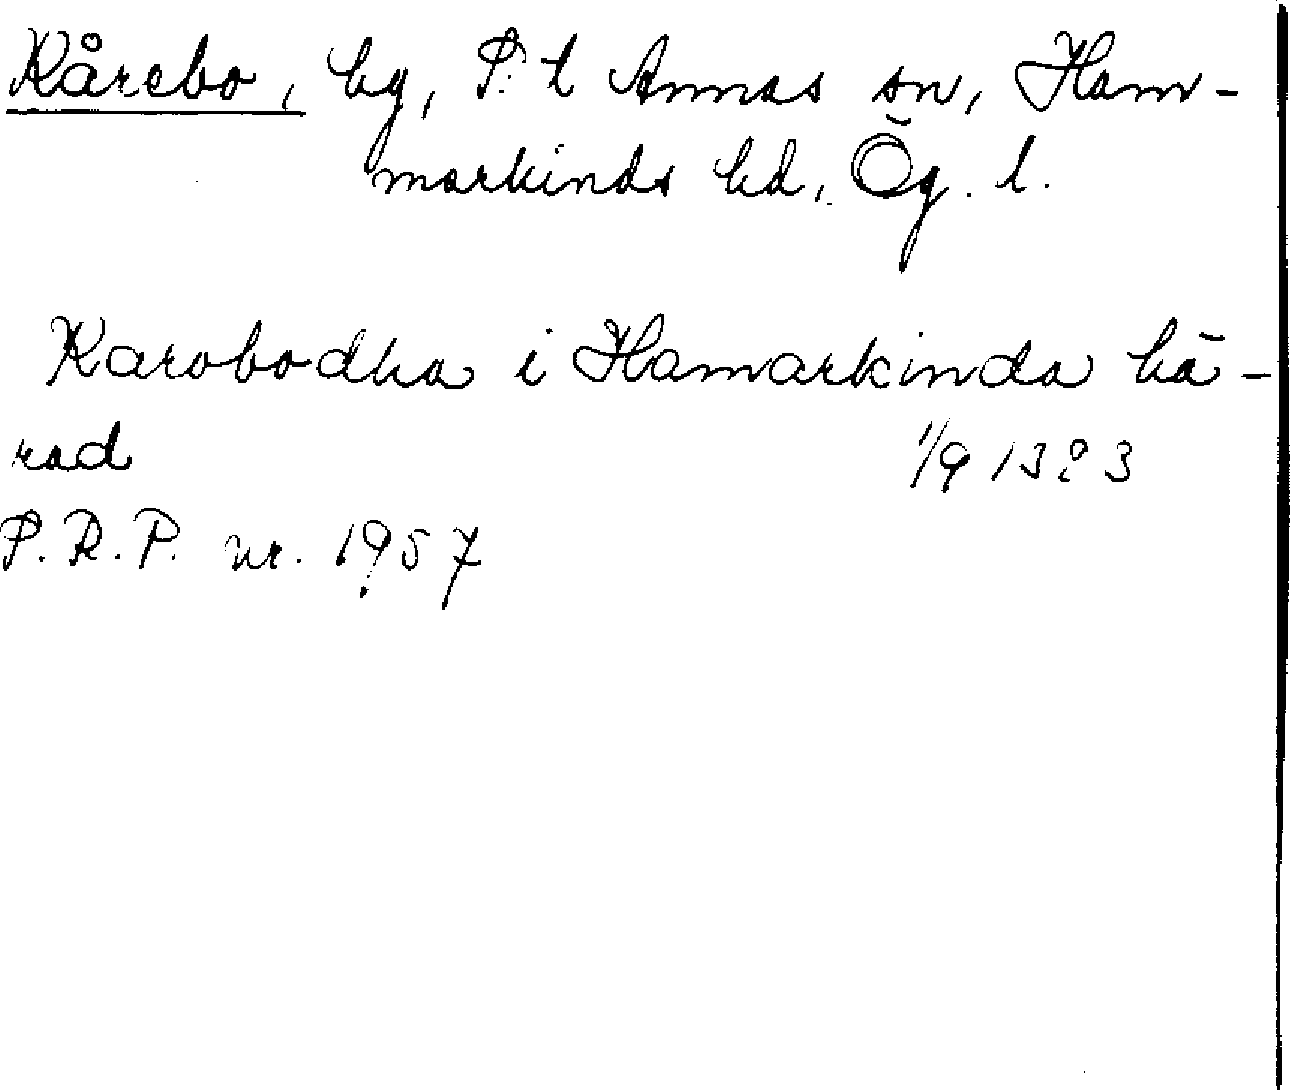 Kårebo, by, S:t Annas sn, Ham-
markinds hd, Ög. l.
Karobodha i Hamarkinda hä-
rad 1/9 1383
S.R.P. nr. 1957